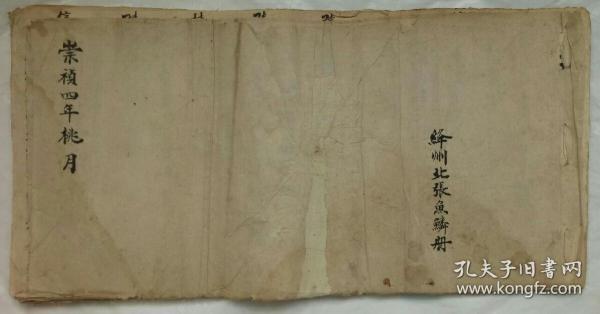 絳州北張魚鱗册
崇禎四年桃月
孔夫子旧書网
www.kongfz.com